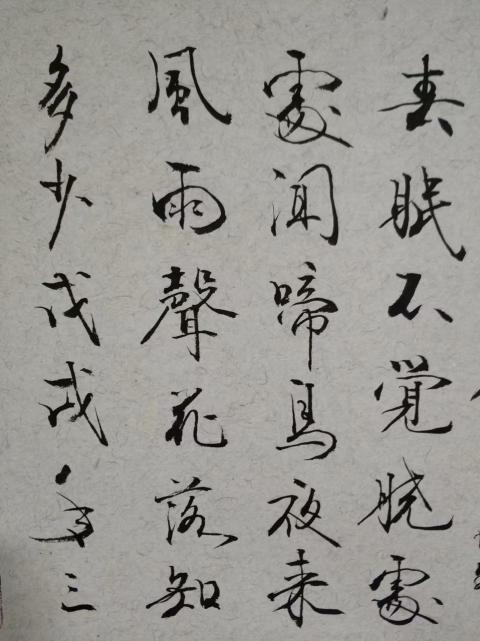 春眠不覚晓處
處闻啼鳥夜来
風雨聲花落知
多少戊戌年三